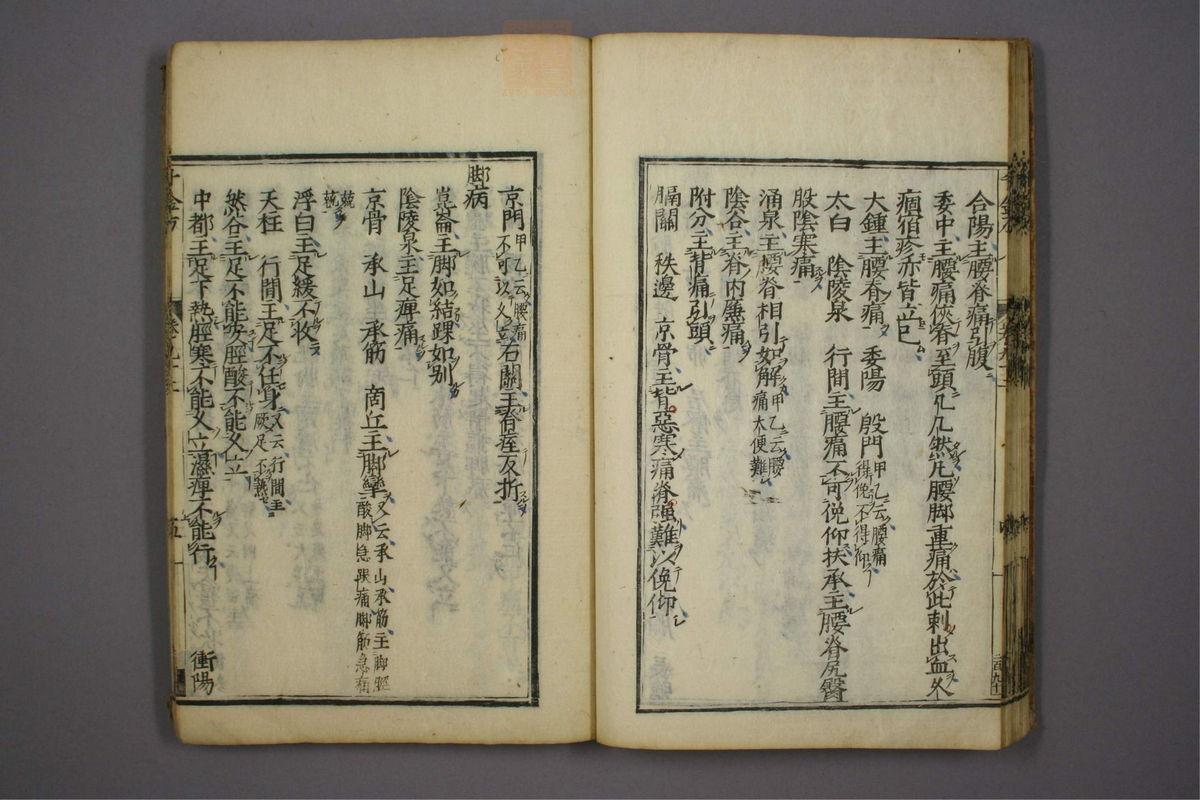 合陽主腰脊痛引腹
委中主腰痛俠脊至頭几几然凡腰脚重痛於此刺出血久
痼宿疹亦皆立已
大鍾主腰脊痛 委陽 殷門甲乙云腰痛得俛不得仰
太白 陰陵泉 行間主腰痛不可俛仰扶承主腰脊尻臀
股陰寒痛
涌泉主腰脊相引如解甲乙云腰痛大便難
陰谷主脊内廉痛
附分主背痛引頭
膈關 秩邊 京骨主背惡寒痛脊強難以俛仰
京門甲乙云腰痛不可以久立石關主脊痓反折
脚病
崑崙主脚如結踝如别
陰陵泉主足痺痛
京骨 承山 承筋 商丘主脚攣又云承山承筋主脚脛酸脚急跟痛脚筋急痛
兢兢
浮白主足緩不收
天柱 行間主足不任身又云行間主厥足下熱
然谷主足不能安脛酸不能久立
中都主足下熱脛寒不能久立濕痺不能行 衝陽